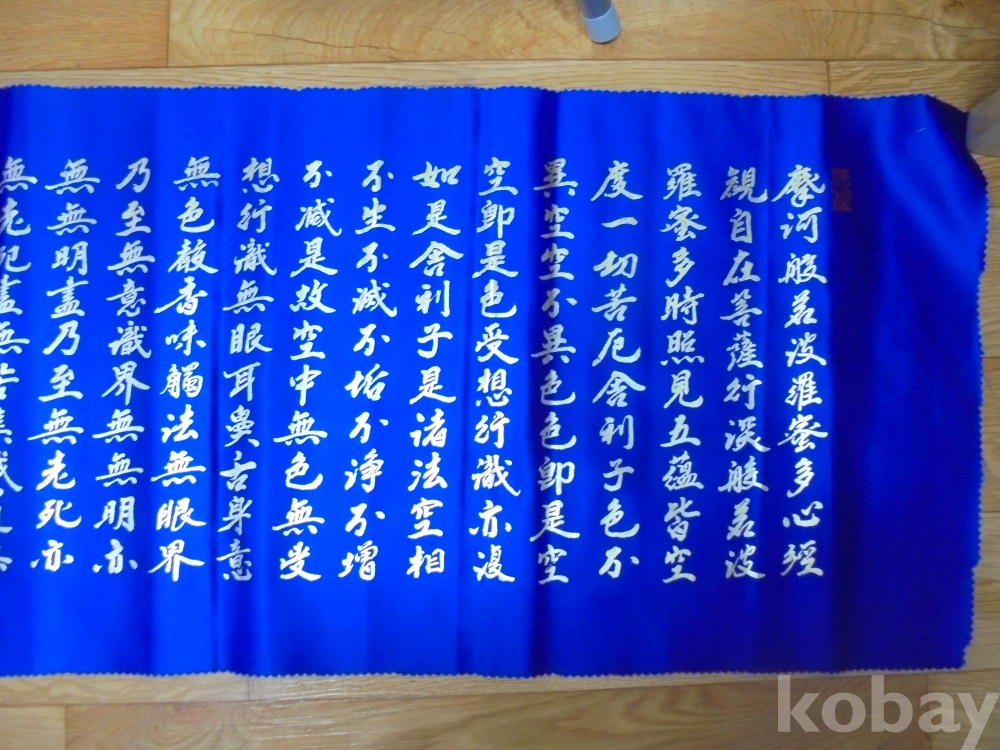 摩訶般若波羅蜜多心經
觀自在菩薩行深般若波
羅蜜多時照見五蘊皆空
度一切苦厄舍利子色不
異空空不異色色即是空
空即是色受想行識亦復
如是舍利子是諸法空相
不生不滅不垢不淨不增
不減是故空中無色無受
想行識無眼耳鼻舌身意
無色聲香味觸法無眼界
乃至無意識界無無明亦
無無明盡乃至無老死亦
無老死盡無苦集滅道
kobay